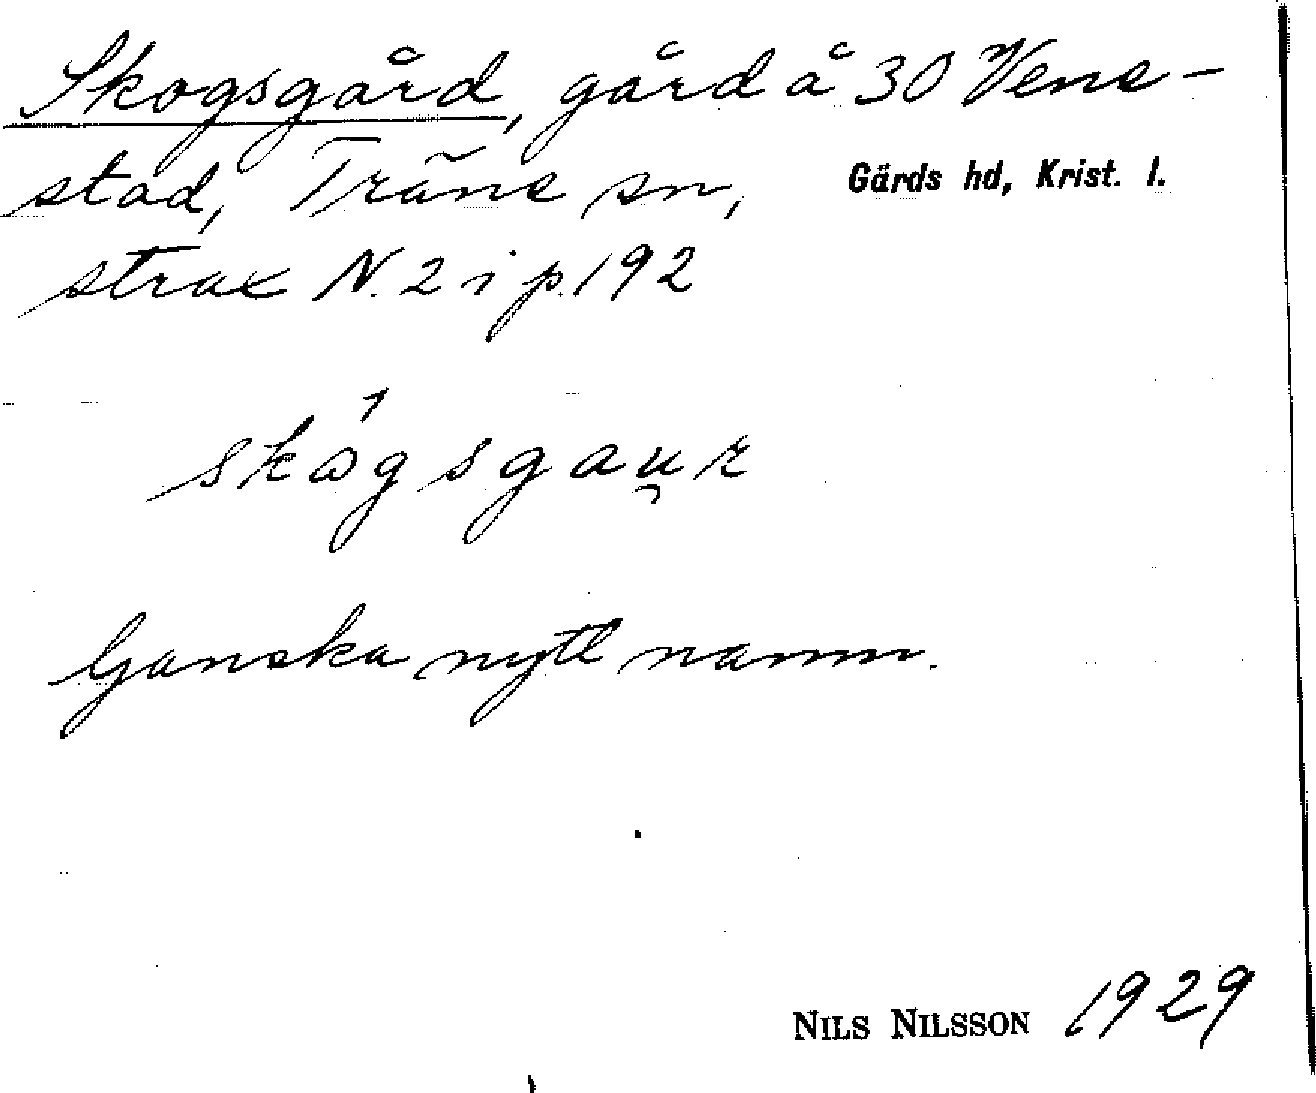 Skogsgård, gård å 30 Vene-
stad, Träne sn, Gärds hd, Krist. l.
strax N. 2 i p. 192
skógsgau̯r
Ganska nytt namn.
NILS NILSSON 1929